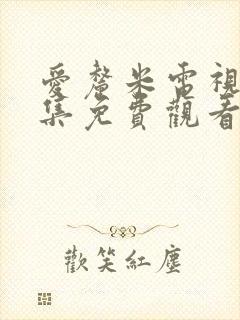 愛釐米電視
集免費觀看
歡笑紅塵